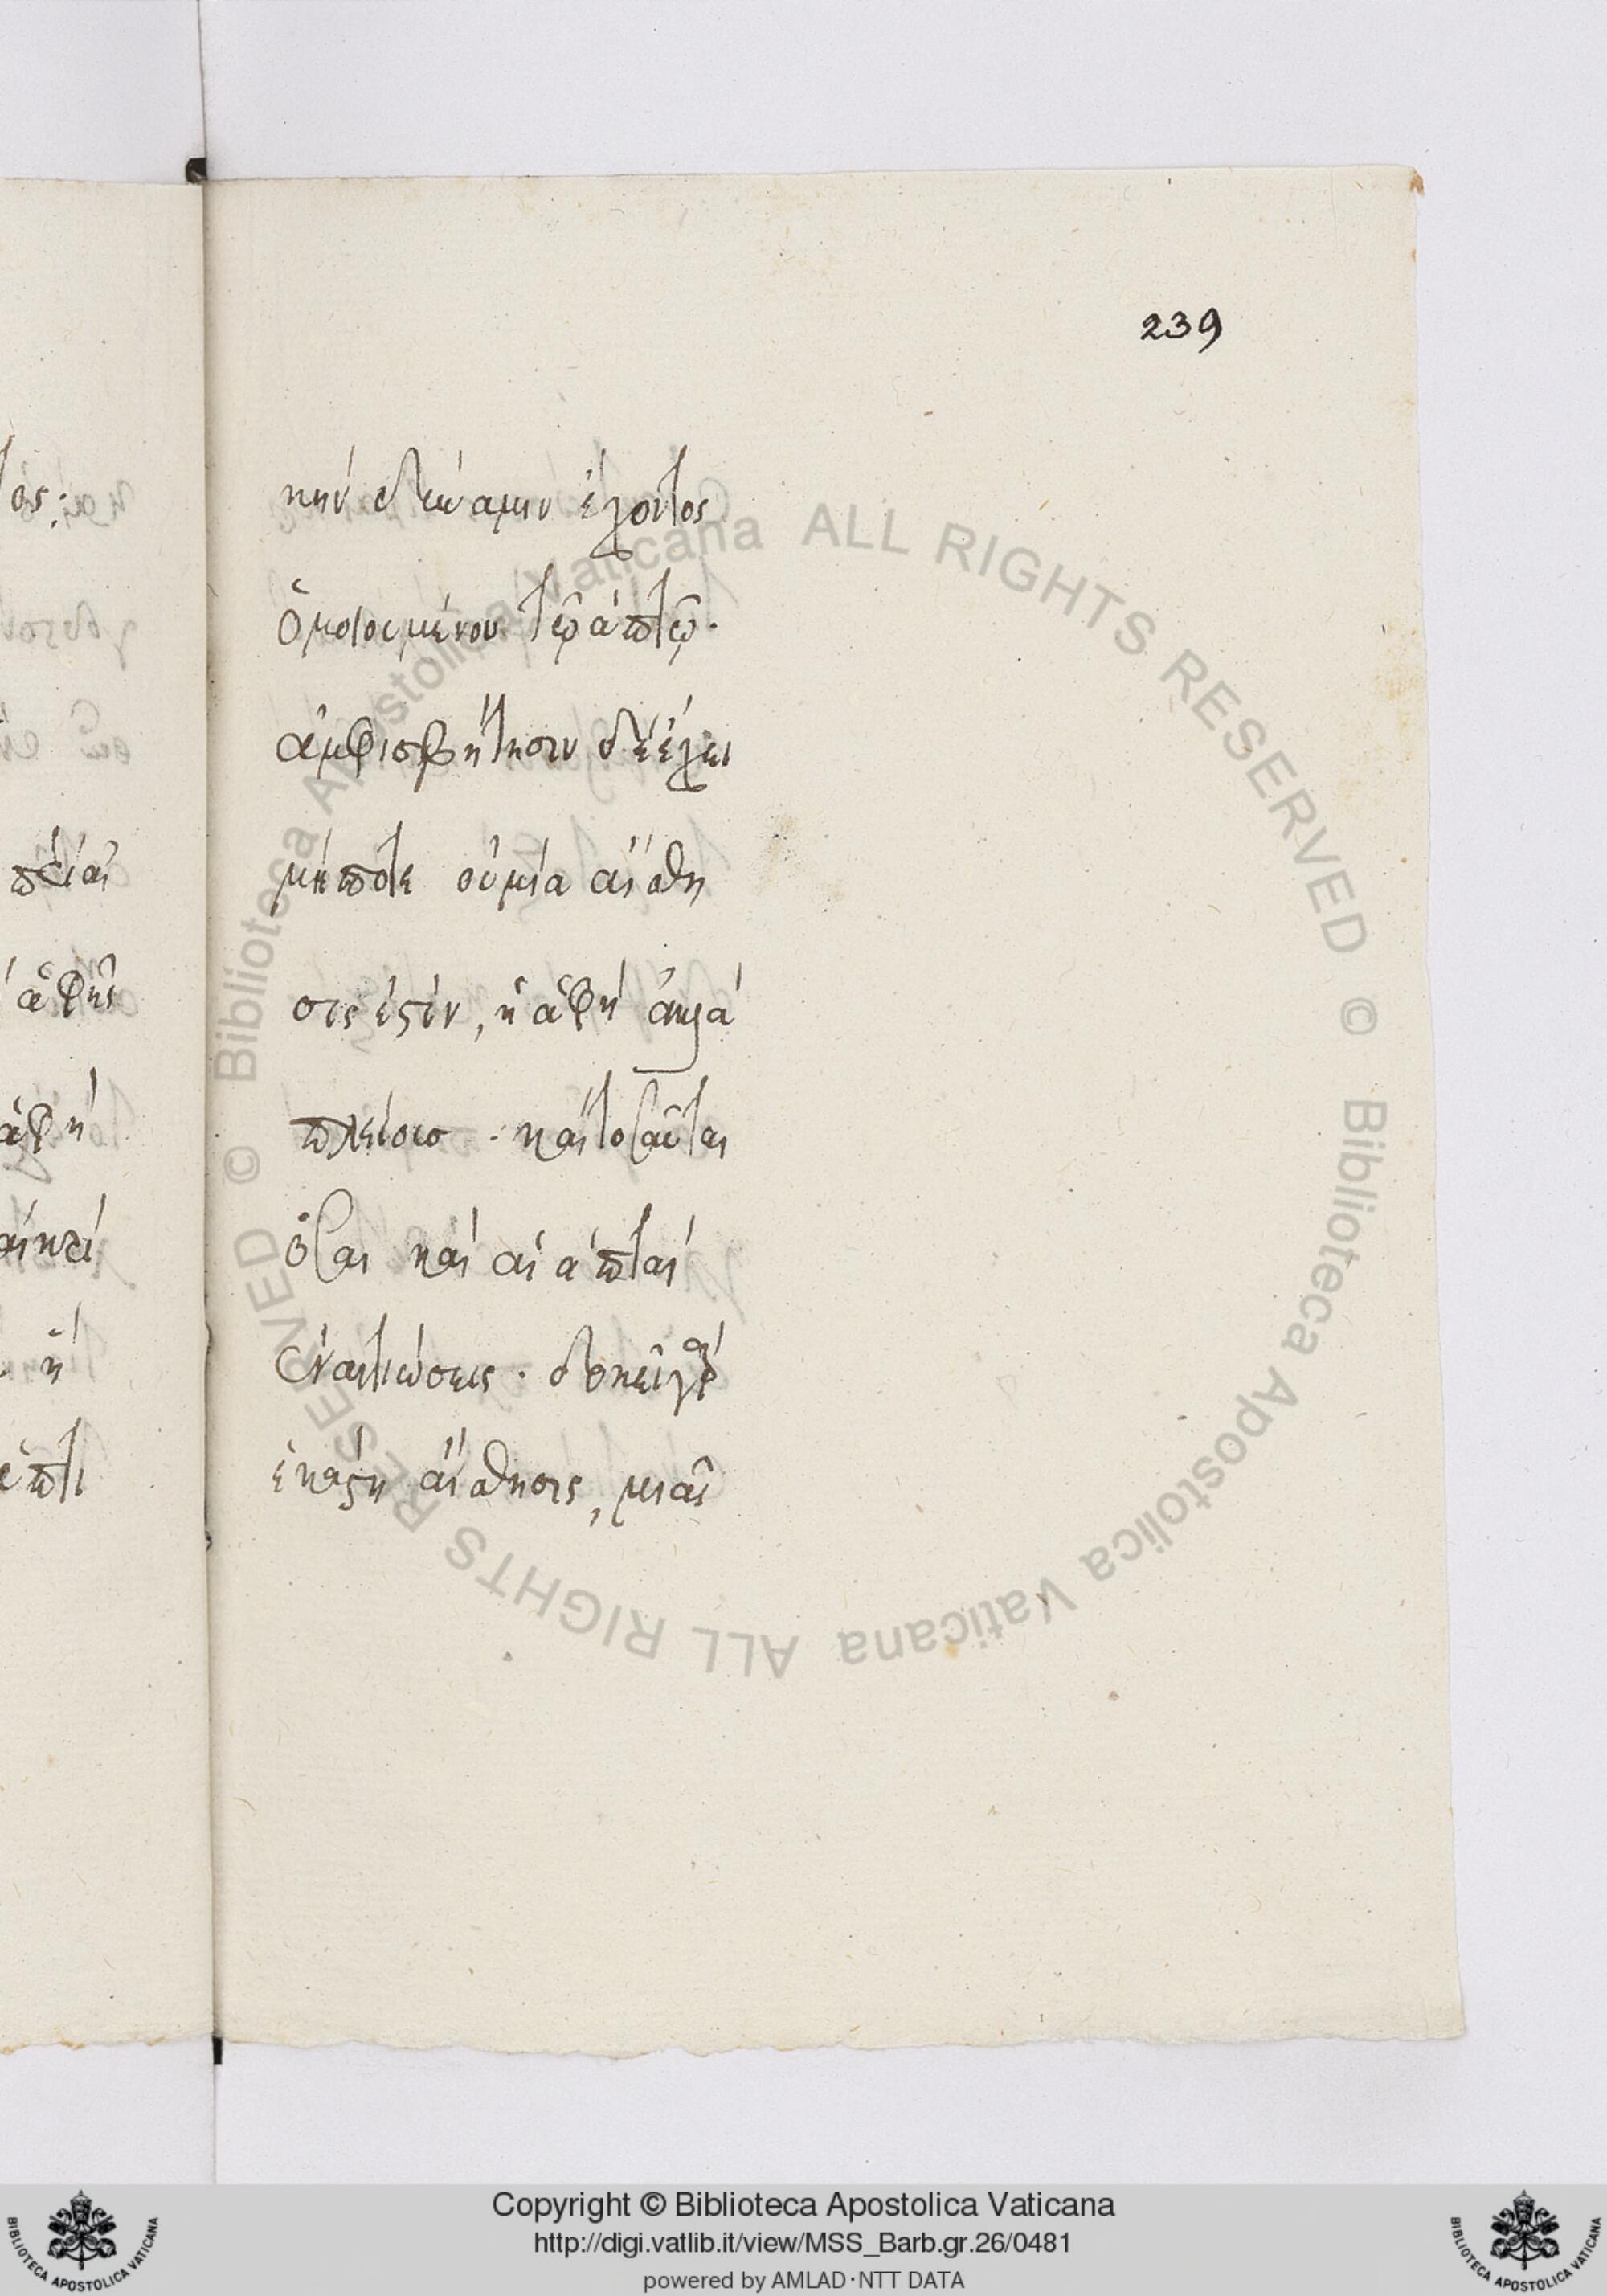 239
κὴν δύναμιν ἔχοντος
ὁμοιουμένου τῷ ἁπτῷ.
ἀμφισβήτησιν δὲ ἔχει
μήποτε οὐ μία αἴσθη
σις ἐστὶν, ἡ ἁφὴ ἀλλὰ
πλείους. καὶ τοσαῦται
ὅσαι καὶ αἱ ἁπταὶ
ἐναντιώσεις. δοκεῖ γὰρ
ἑκάστη αἴσθησις, μιᾶς
ος:
ἁφῆς
ἁφὴ
ἡ
Copyright © Biblioteca Apostolica Vaticana
http://digi.vatlib.it/view/MSS_Barb.gr.26/0481
powered by AMLAD·NTT DATA
BIBLIOTECA APOSTOLICA VATICANA
BIBLIOTECA APOSTOLICA VATICANA
© Biblioteca Apostolica Vaticana ALL RIGHTS RESERVED
© Biblioteca Apostolica Vaticana ALL RIGHTS RESERVED